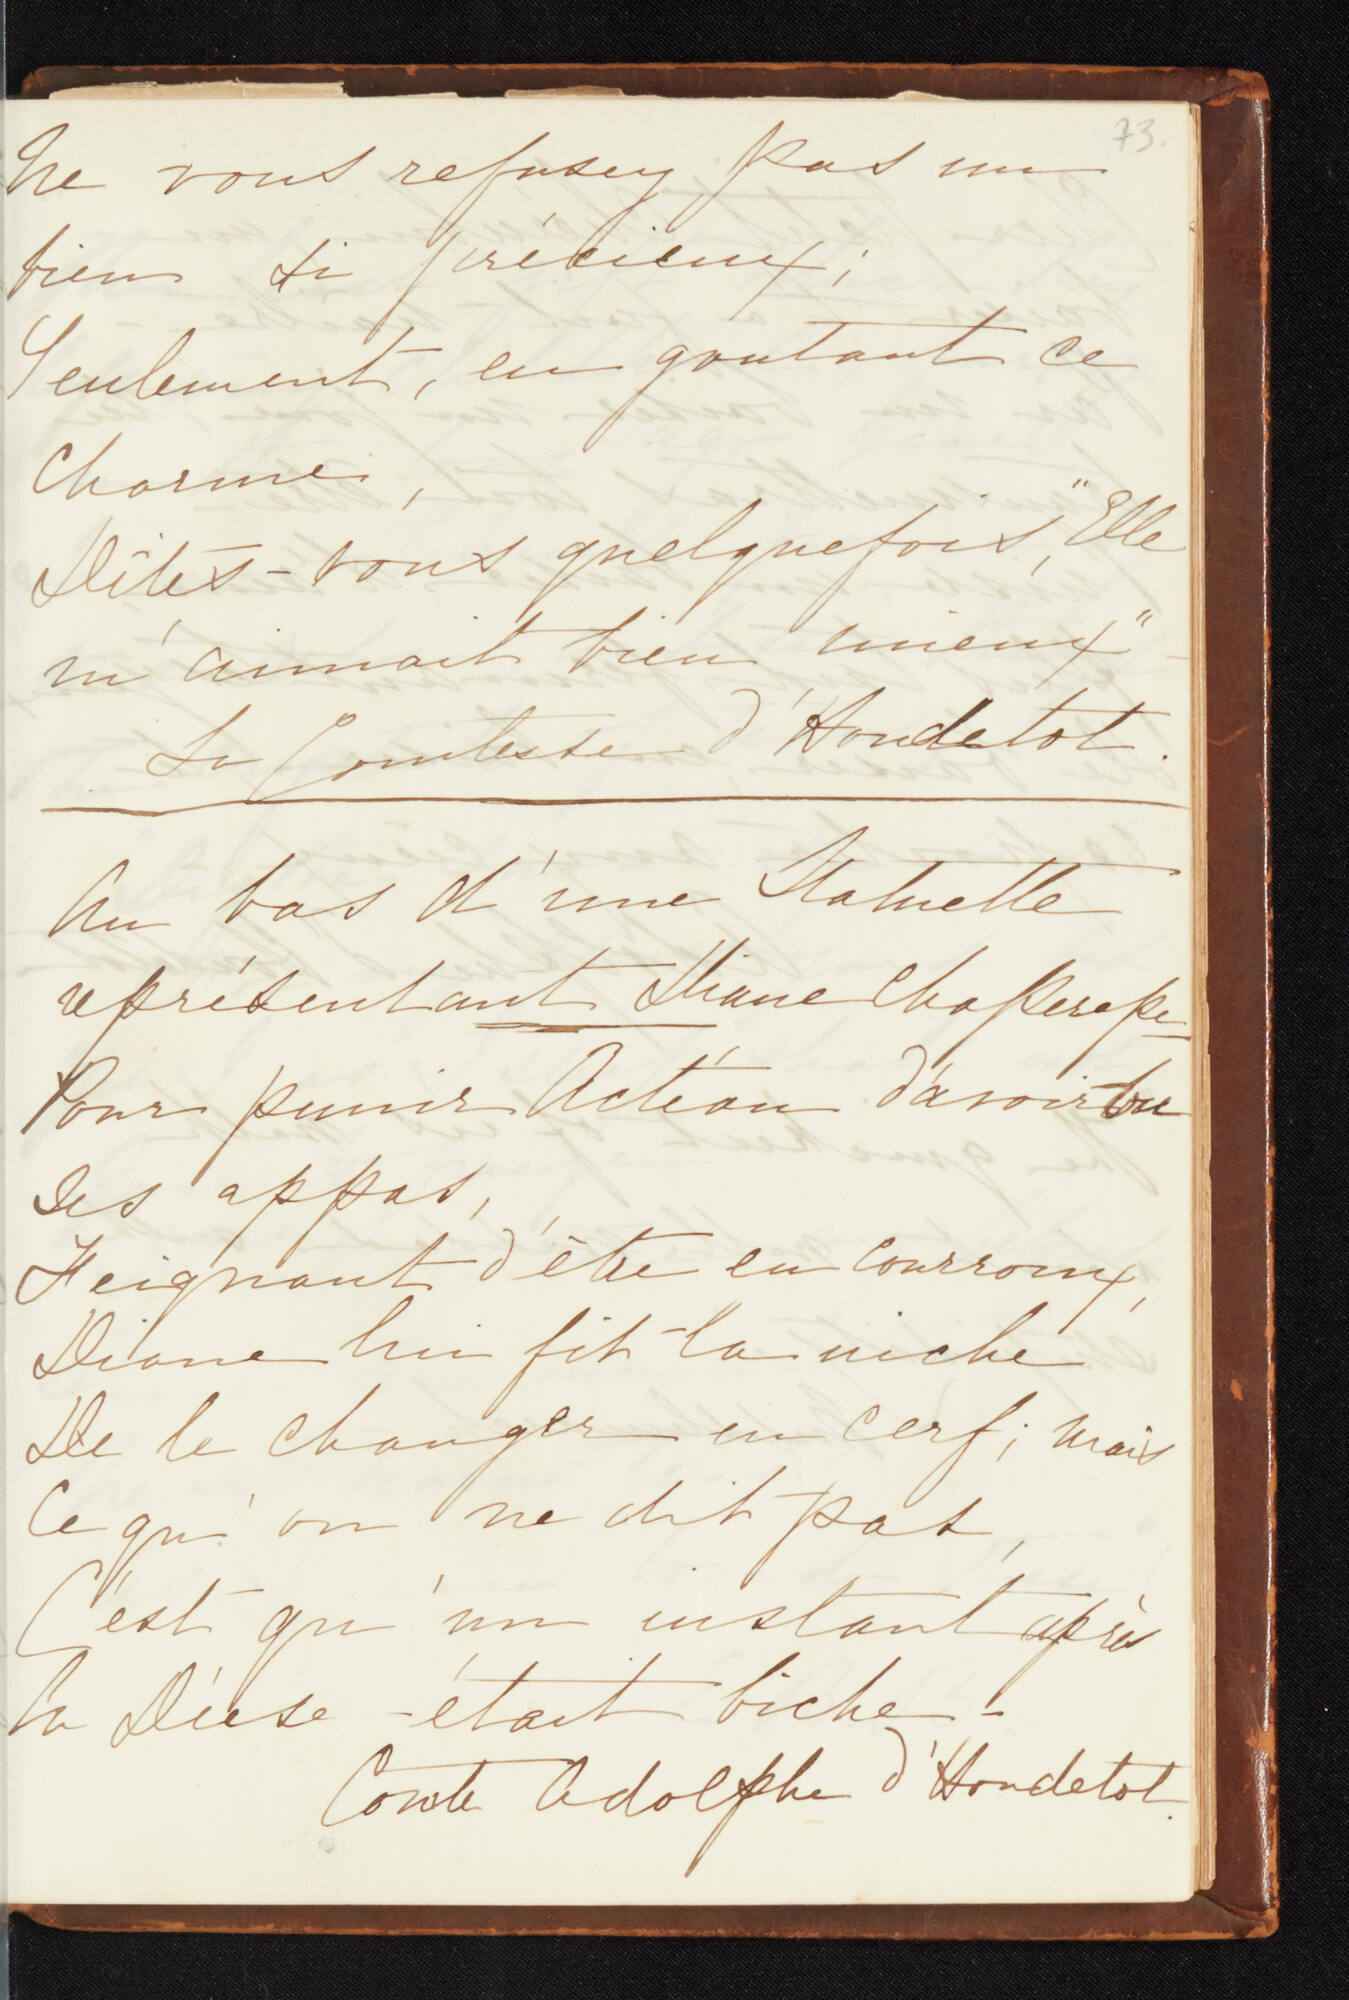 73.
Ne vous refusez pas un
bien si précieux;
Seulement, en goutant ce
Charme,
Dites-vous quelquefois, "Elle
m'aimait bien mieux"
La Comtesse d'Houdetot.
Au bas d'une Statuette
représentant Diane Chasseresse
Pour punir Actéon d'avoir vu
Ses appas,
Feignant d'être en courroux,
Diane lui fit la niche
De le changer en cerf; mais
Ce qu'on ne dit pas,
C'est qu'un instant après
la Déese était biche -
Comte Adolphe d'Houdetot.